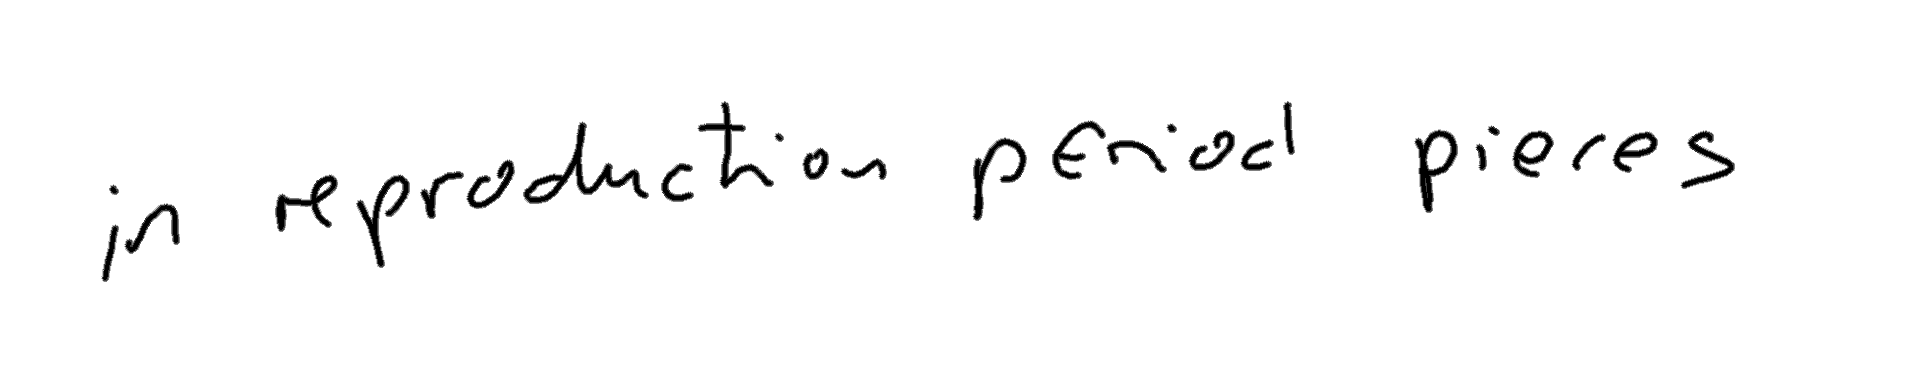 in reproduction period pieces